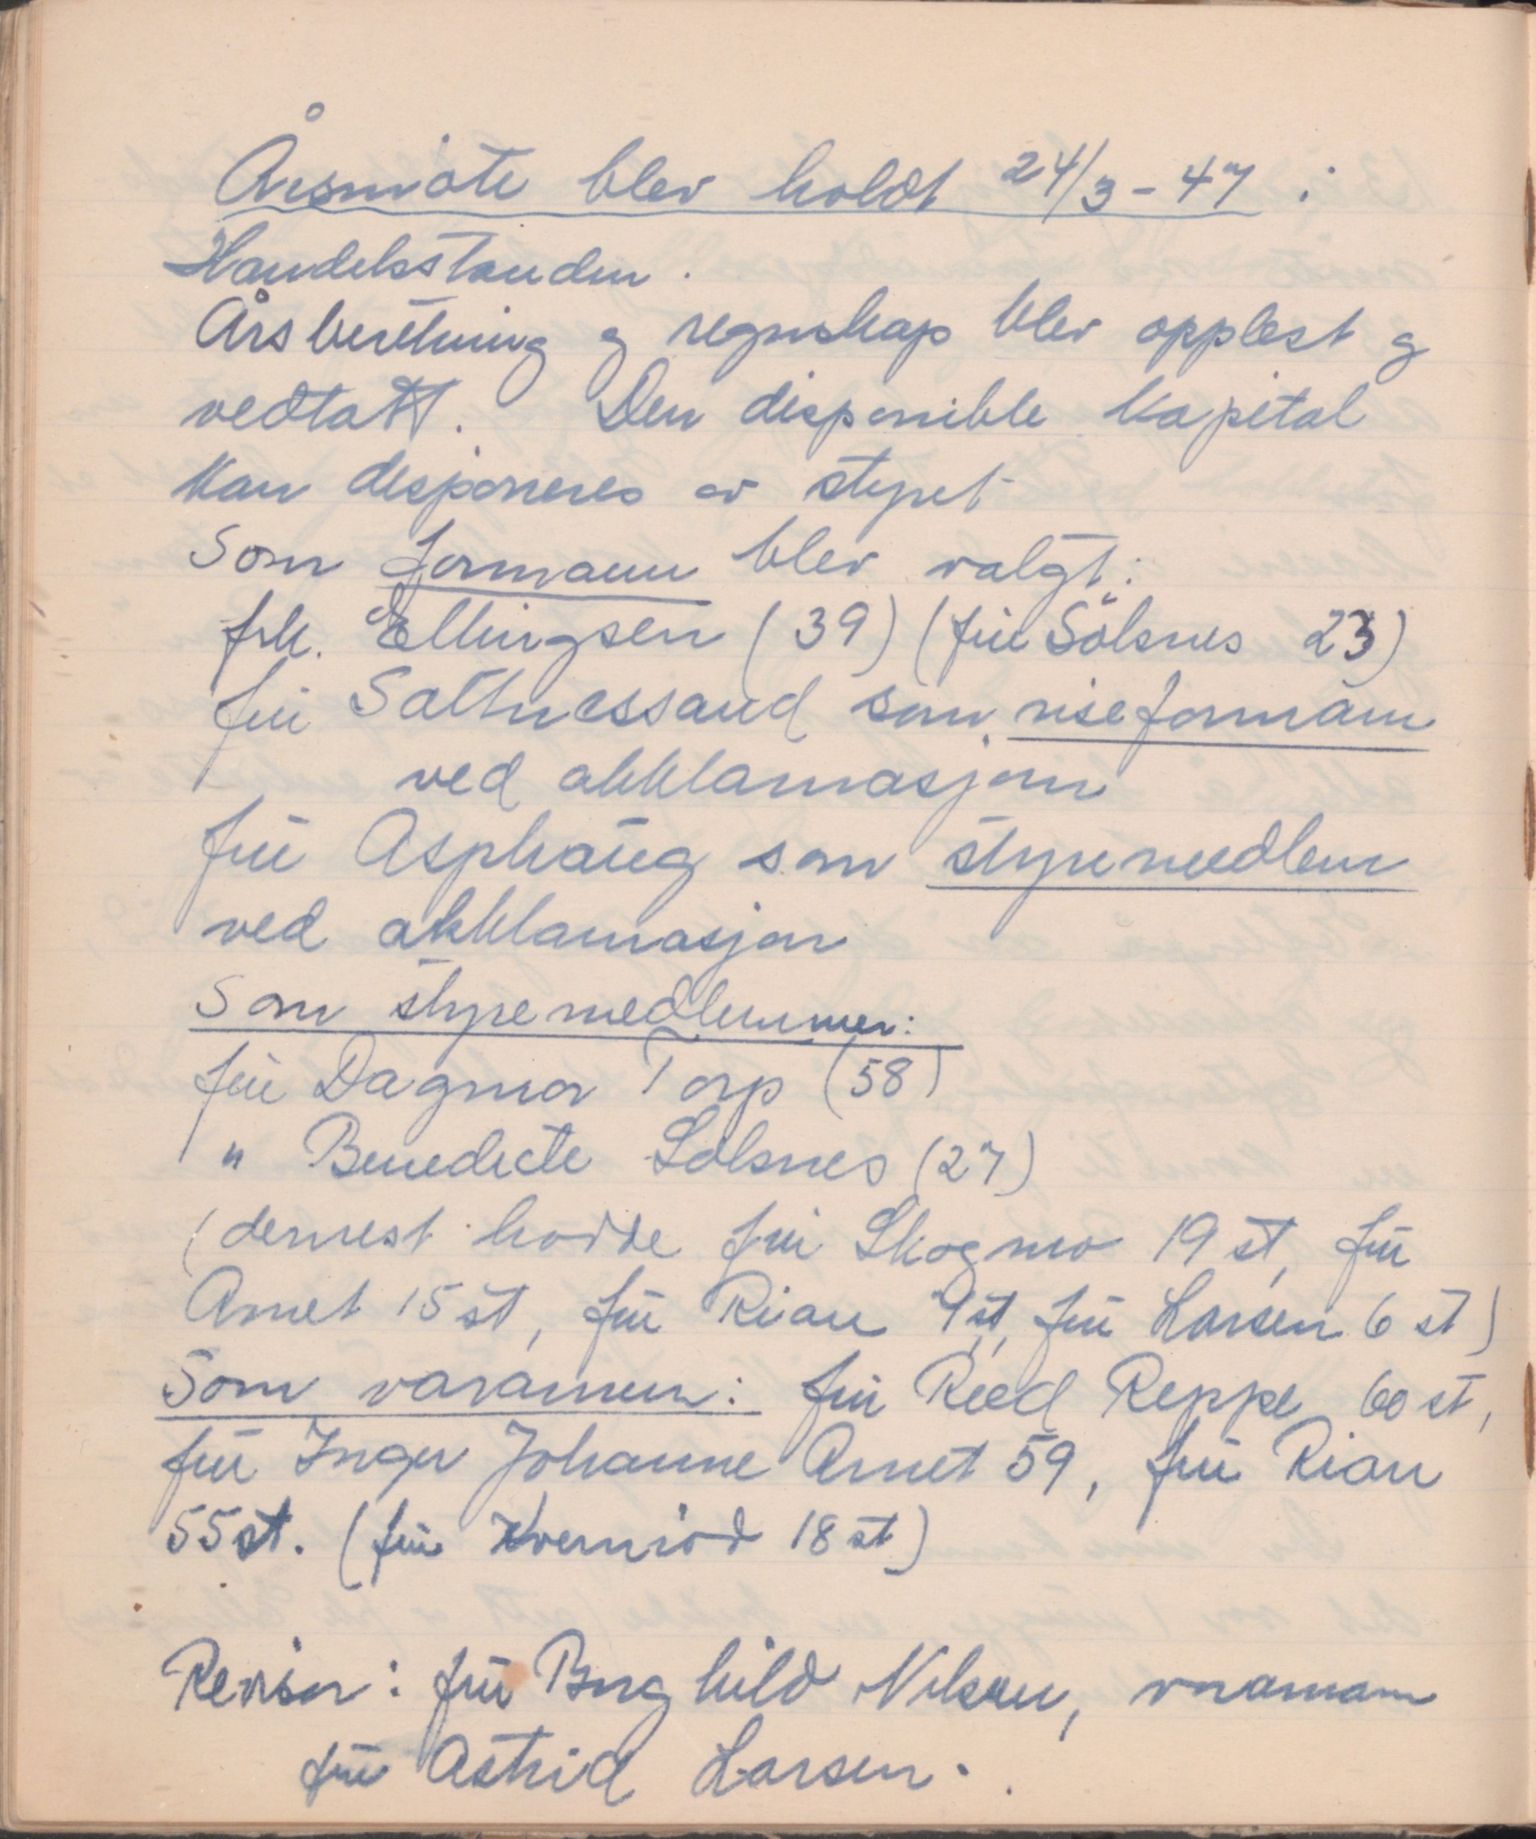 Årsmøte blev holdt 24/3-47 i
Handelsstanden.
Årsberetning og regnskap blev opplest og
vedtatt. Den disponible kapital
kan disponeres av styret
Som formann blev valgt:
frk. Ellingsen (39) (fru Sölsnes 23)
fru Sathnessand som viseformann
ved akklamasjon
fru Asphaug som styremedlem
ved akklamasjon
Som styremedlemmer:
fru Dagmar Torp (58)
" Benedicte Solsnes (27)
(dernest hadde fru Skogmo 19 st, fru
Arnet 15 st, fru Rian 9 st, fru Larsen 6 st)
Som varamenn: fru Reed Reppe 60 st,
fru Inger Johanne Arnet 59, fru Rian
55 st. (fru Kvernrød 18 st)
Revisor: fru Borghild Nilsen, varamann
fru Astrid Larsen.